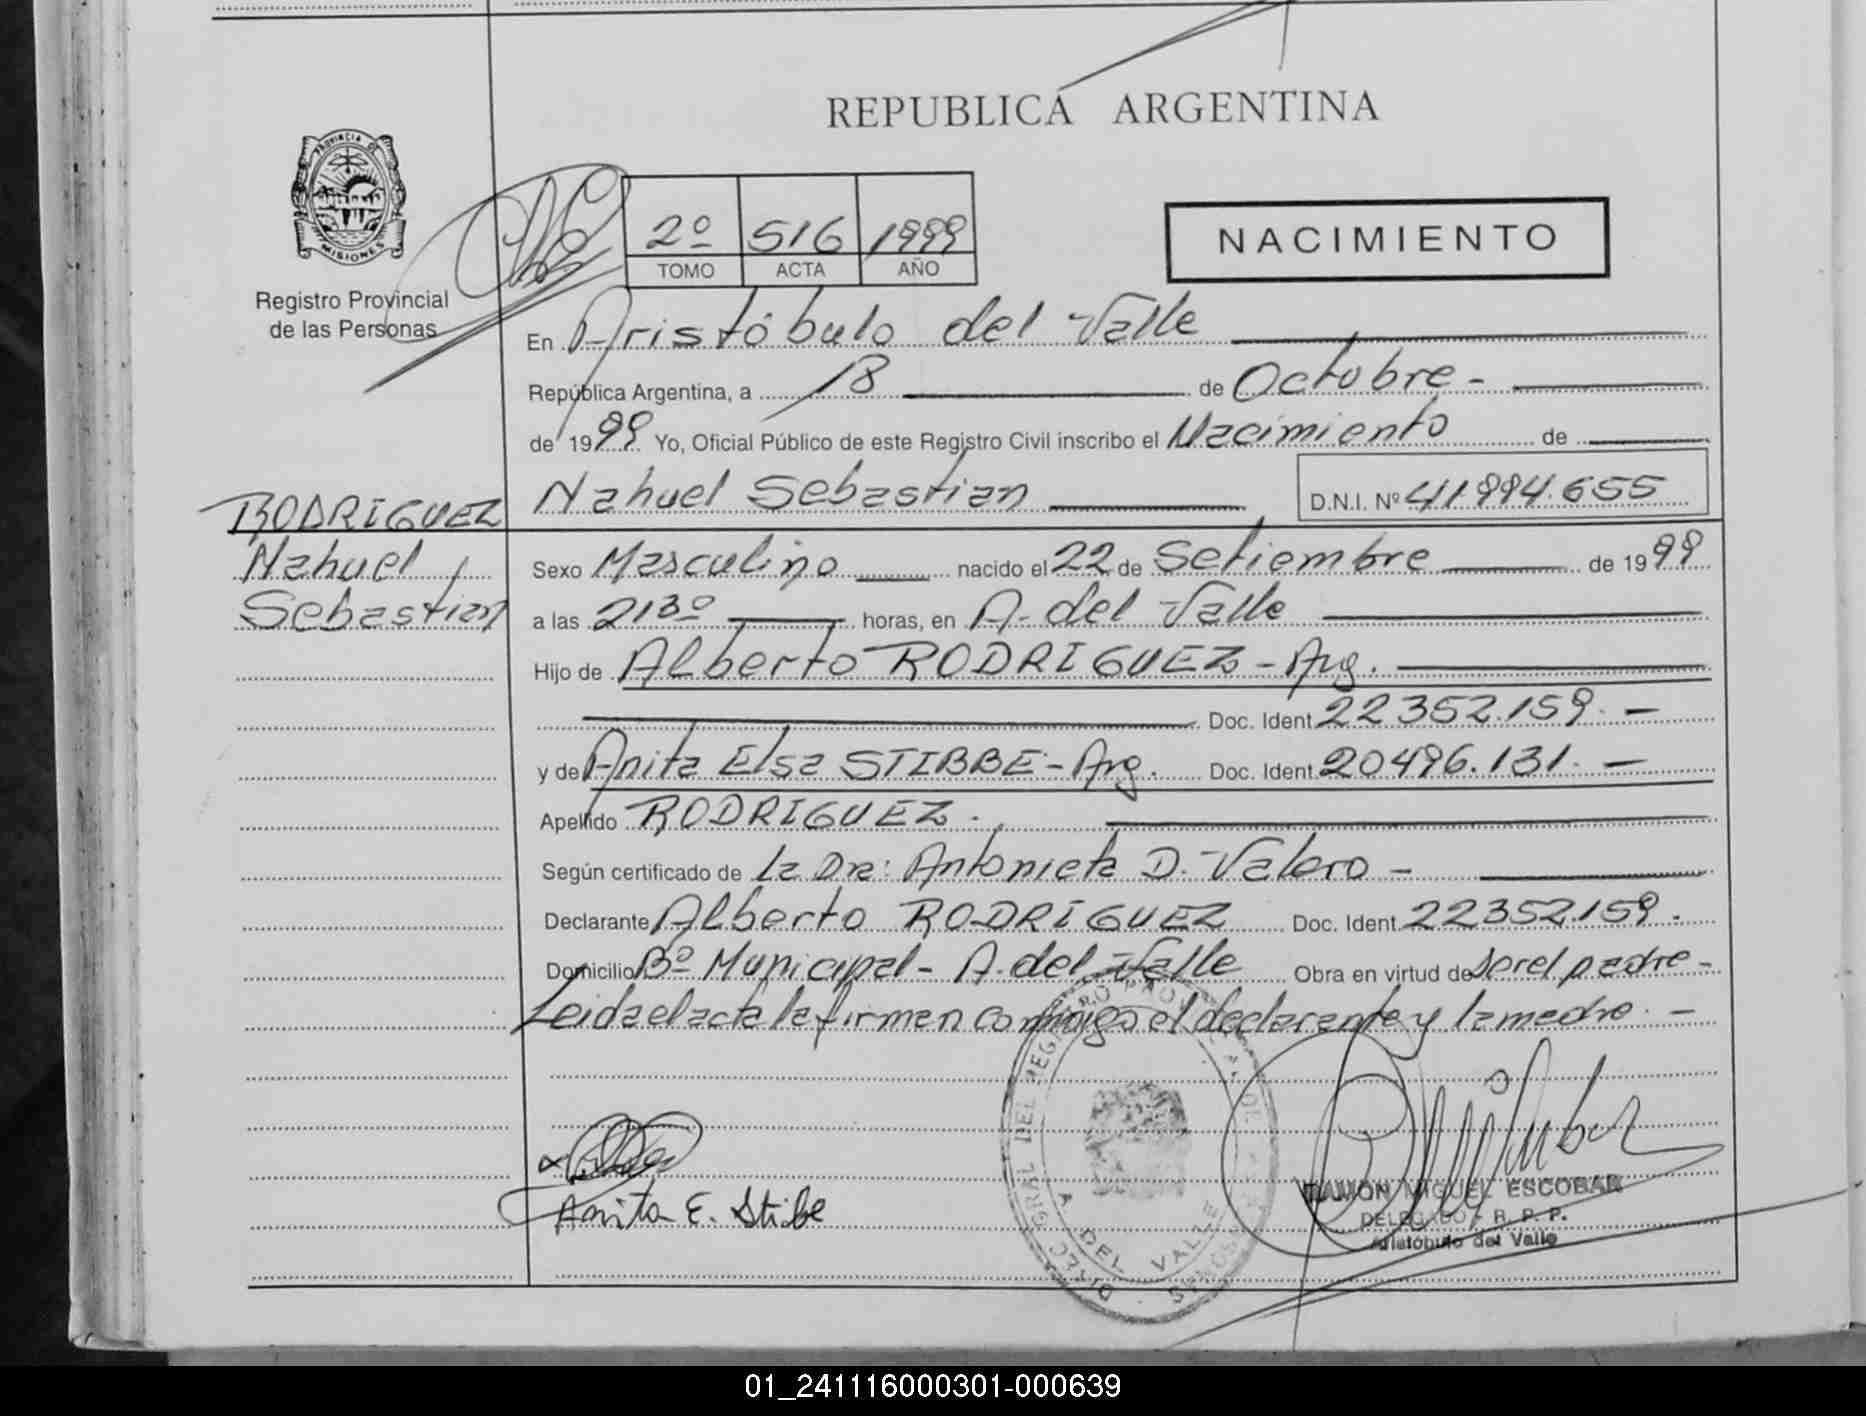 REPUBLICA ARGENTINA
PROVINCIA DE
MISIONES
Registro Provincial
de las Personas
2º 516 1999
TOMO ACTA AÑO
NACIMIENTO
En Aristóbulo del Valle
República Argentina, a 18 de Octubre -
de 1999 Yo, Oficial Público de este Registro Civil inscribo el Nacimiento de
Nahuel Sebastian D.N.I. Nº 41.994.655
RODRIGUEZ
Nahuel
Sebastian
Sexo Masculino nacido el 22 de Setiembre de 1999
a las 21³⁰ horas, en A. del Valle
Hijo de Alberto RODRIGUEZ - Arg.
Doc. Ident 22352.159. -
y de Anita Elsa STIBBE - Arg. Doc. Ident 20496.131. -
Apellido RODRIGUEZ.
Según certificado de la Dra: Antonieta D. Valero -
Declarante Alberto RODRIGUEZ Doc. Ident 22352.159.
Domicilio Bº Municipal - A. del Valle Obra en virtud de ser el padre -
Leida el acta la firman conmigo el declarante y la madre. -
A. DEL VALLE
Anita E. Stibe
RAMON MIGUEL ESCOBAR
DELEGADO - R. P. P.
Aristóbulo del Valle
01_241116000301-000639